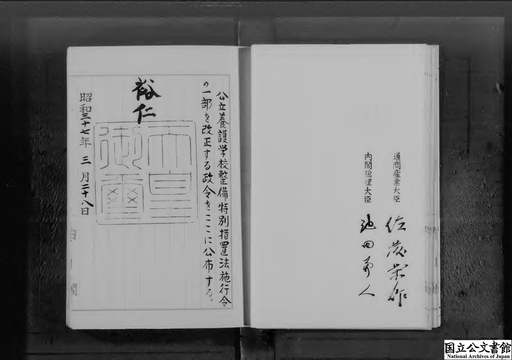 公立養護学校整備特別措置法施行令
の一部を改正する政令をここに公布する。
裕仁
天皇
御璽
昭和三十七年三月二十八日
通商産業大臣 佐藤栄作
内閣総理大臣 池田勇人
国立公文書館
National Archives of Japan